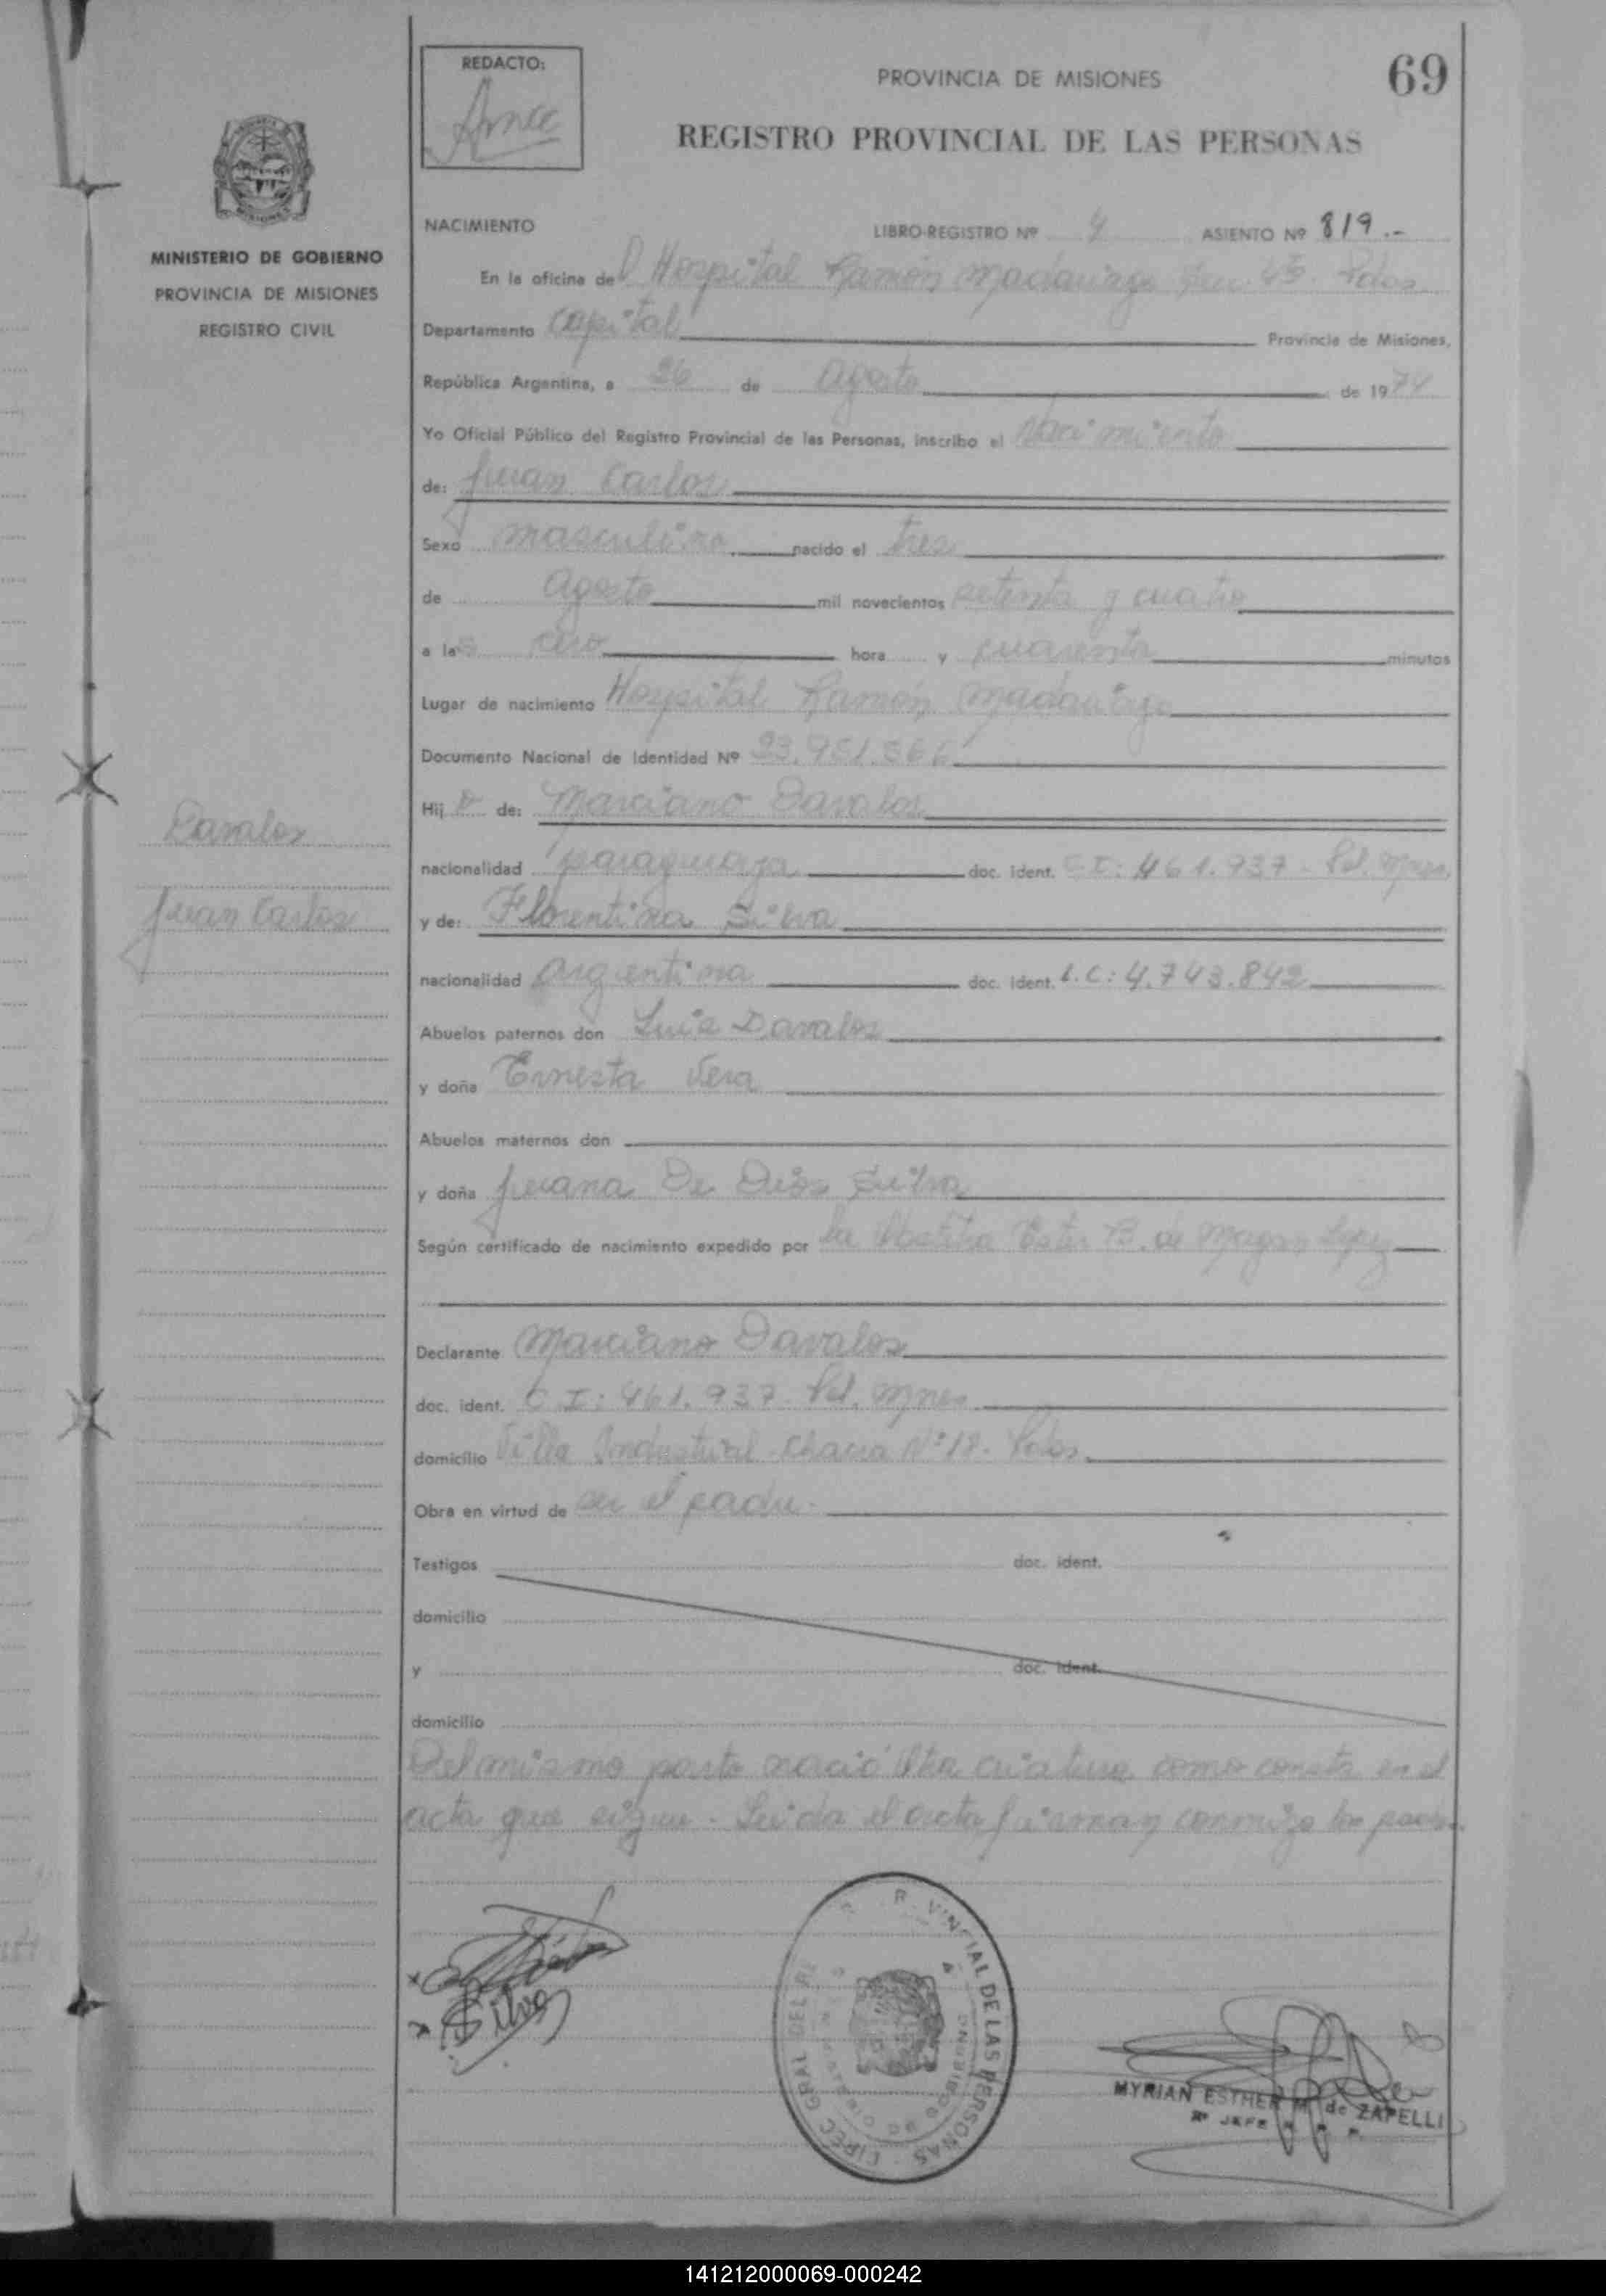 REDACTO:
PROVINCIA DE MISIONES
69
REGISTRO PROVINCIAL DE LAS PERSONAS
MINISTERIO DE GOBIERNO
PROVINCIA DE MISIONES
REGISTRO CIVIL
NACIMIENTO LIBRO-REGISTRO Nº 4 ASIENTO Nº 819.-
En la oficina del Hospital Ramón Madariaga
Departamento Capital Provincia de Misiones,
República Argentina, a 26 de Agosto de 1974
Yo Oficial Público del Registro Provincial de las Personas, inscribo el Nacimiento
de: Juan Carlos
Sexo masculino nacido el tres
de agosto mil novecientos setenta y cuatro
a las cero hora y cuarenta minutos
Lugar de nacimiento Hospital Ramón Madariaga
Documento Nacional de Identidad Nº
Hijo de: Marciano Davalos
Davalos
nacionalidad paraguaya doc. ident. C I: 461.937 - Pol. Mnes.
Juan Carlos
y de: Florentina Silva
nacionalidad argentina doc. ident. L.C: 4.743.842
Abuelos paternos don Luis Davalos
y doña Ernesta Vera
Abuelos maternos don
y doña Juana De Dios Silva
Según certificado de nacimiento expedido por la Ester B. de
Declarante Marciano Davalos
doc. ident. C.I: 461.937. Pol. Mnes
domicilio Villa Industrial - Chacra Nº 18 - Pdas.
Obra en virtud de ser el padre.
Testigos doc. ident.
domicilio
y doc. ident.
domicilio
Del mismo parto nació otra criatura como consta en el
acta que sigue. Leida el acta firman conmigo los padres.
Silva
MYRIAN ESTHER M. de ZAPELLI
JEFE
141212000069-000242